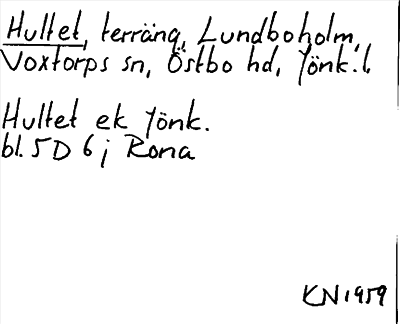 Hultet, terräng, Lundboholm,
Voxtorps sn, Östbo hd, Jönk. l.
Hultet ek Jönk.
bl. 5D 6j Rona
KN 1959